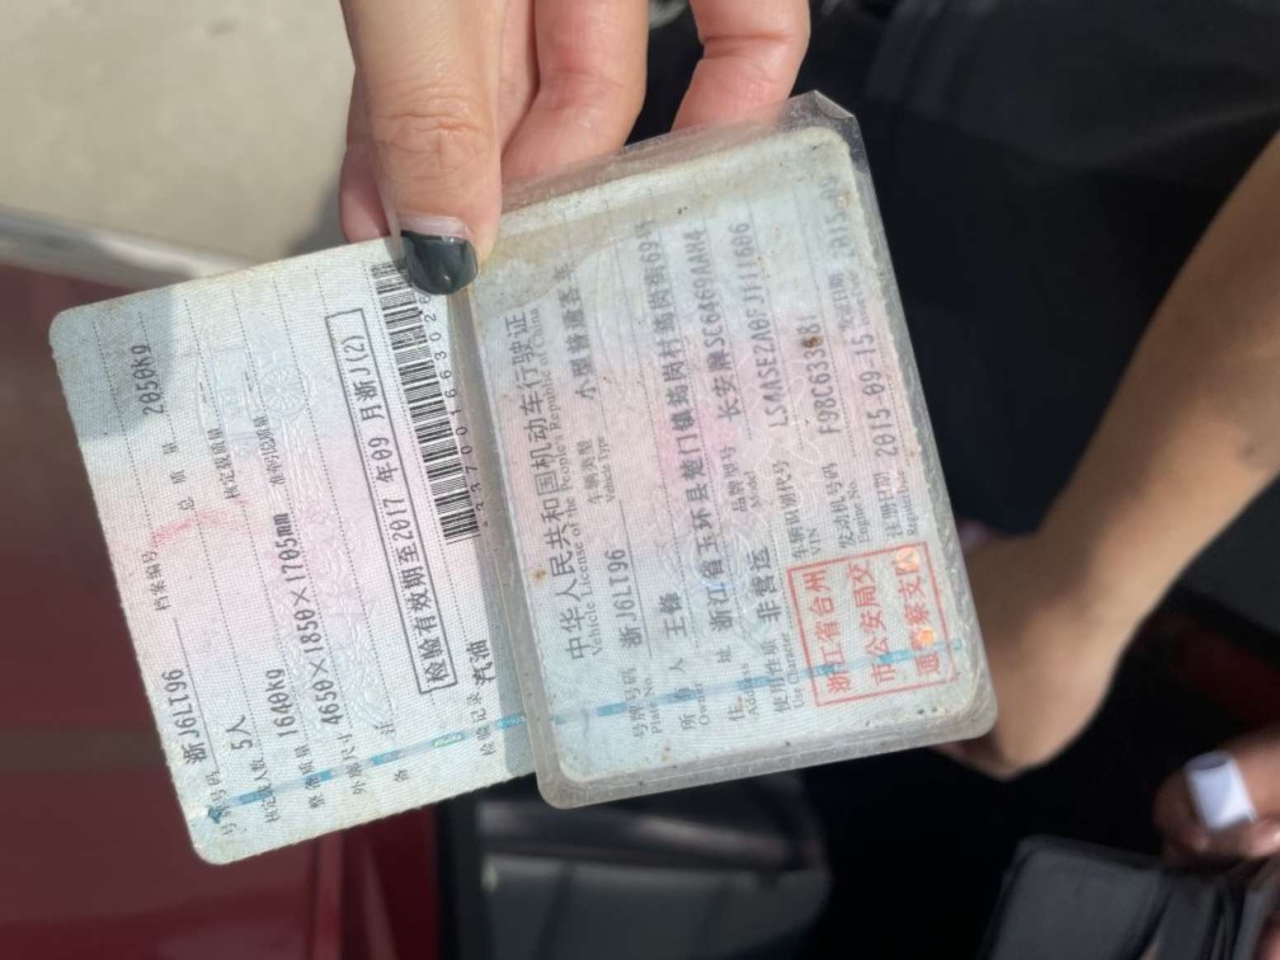 中华人民共和国机动车行驶证
Vehicle License of the People's Republic of China
号牌号码 浙J6LT96 车辆类型 小型普通客车
Plate No. Vehicle Type
所有人 王锋
Owner
住址 浙江省玉环县楚门镇
Address
使用性质 非营运 品牌型号 长安牌SC6469AAH4
Use Character Model
车辆识别代号
VIN
浙江省台州
市公安局交
通警察支队
发动机号码
Engine No.
注册日期 2015-09-15 发证日期
号牌号码 浙J6LT96 档案编号
核定载人数 5人 总质量 2050kg
整备质量 1640kg 核定载质量
外廓尺寸 4650×1850×1705mm 准牵引总质量
备注
检验有效期至2017年09月浙J(2)
检验记录 汽油